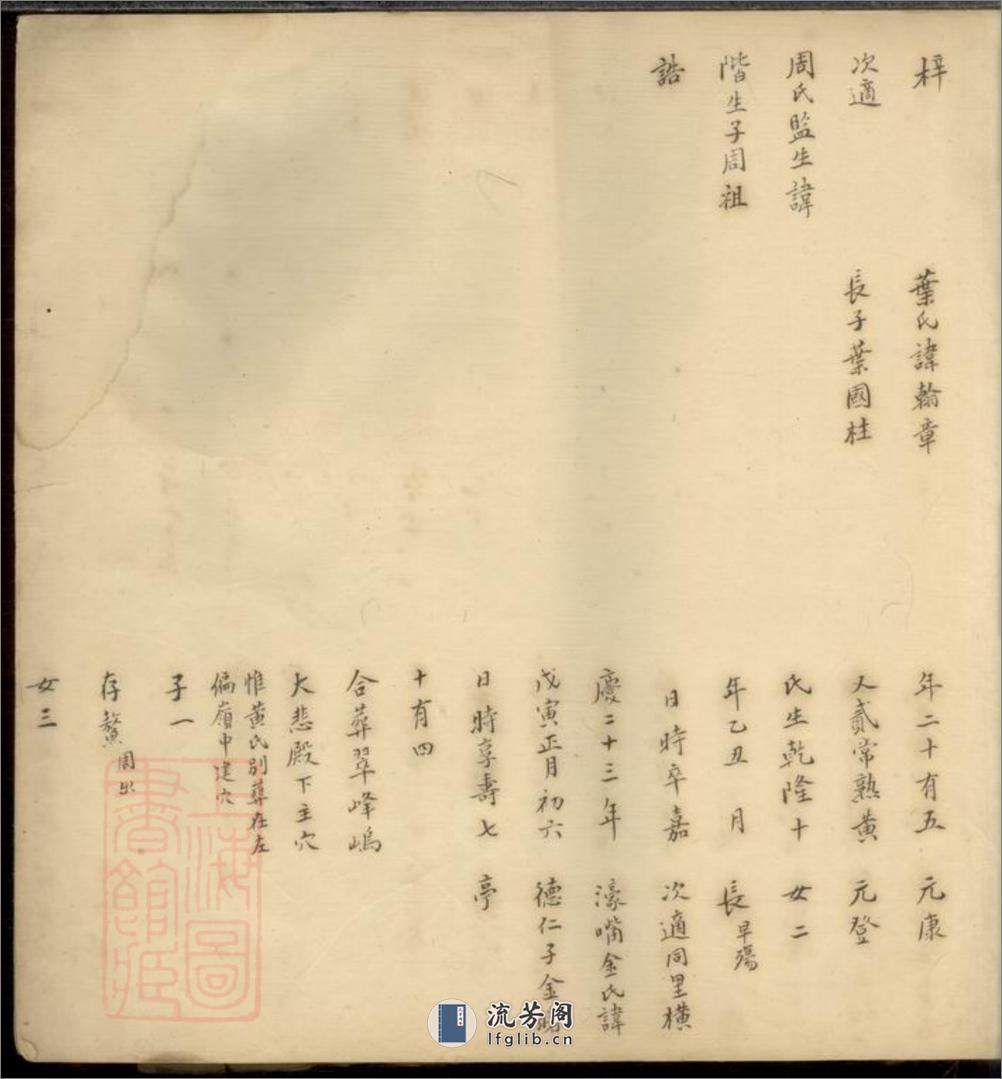 梓
次適
周氏監生諱
階生子周祖
誥
葉氏諱翰章
長子葉國桂
年二十有五
又貳常熟黄
氏生乾隆十
年乙丑 月
日時卒嘉
慶二十三年
戊寅正月初六
日時享壽七
十有四
合葬翠峰嶋
大悲殿下主穴
惟黄氏别葬在左
偏嶺中建穴
子一
存鰲周出
女三
元康
元登
女二
長早殤
次適同里橫
濠嘴金氏諱
德仁子金
亭
上海圖
書館藏
流芳阁
lfglib.cn